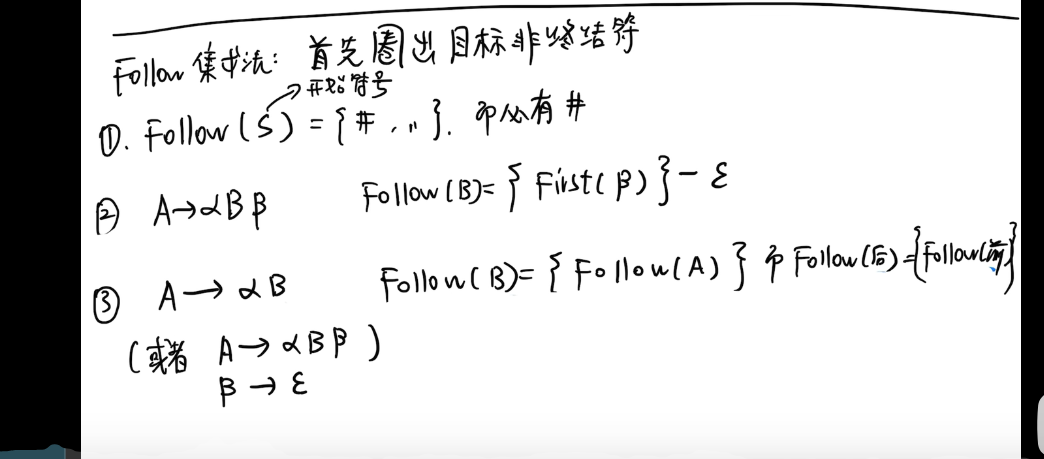 Follow 集求法: 首先圈出目标非终结符
开始符号
①. Follow(S) = {#, ..}. 即必有 #
② A→αBβ Follow(B)= {First(β)}-ε
③ A→αB Follow(B)= {Follow(A)} 即 Follow(后)={Follow(前)}
(或者 A→αBβ)
β→ε